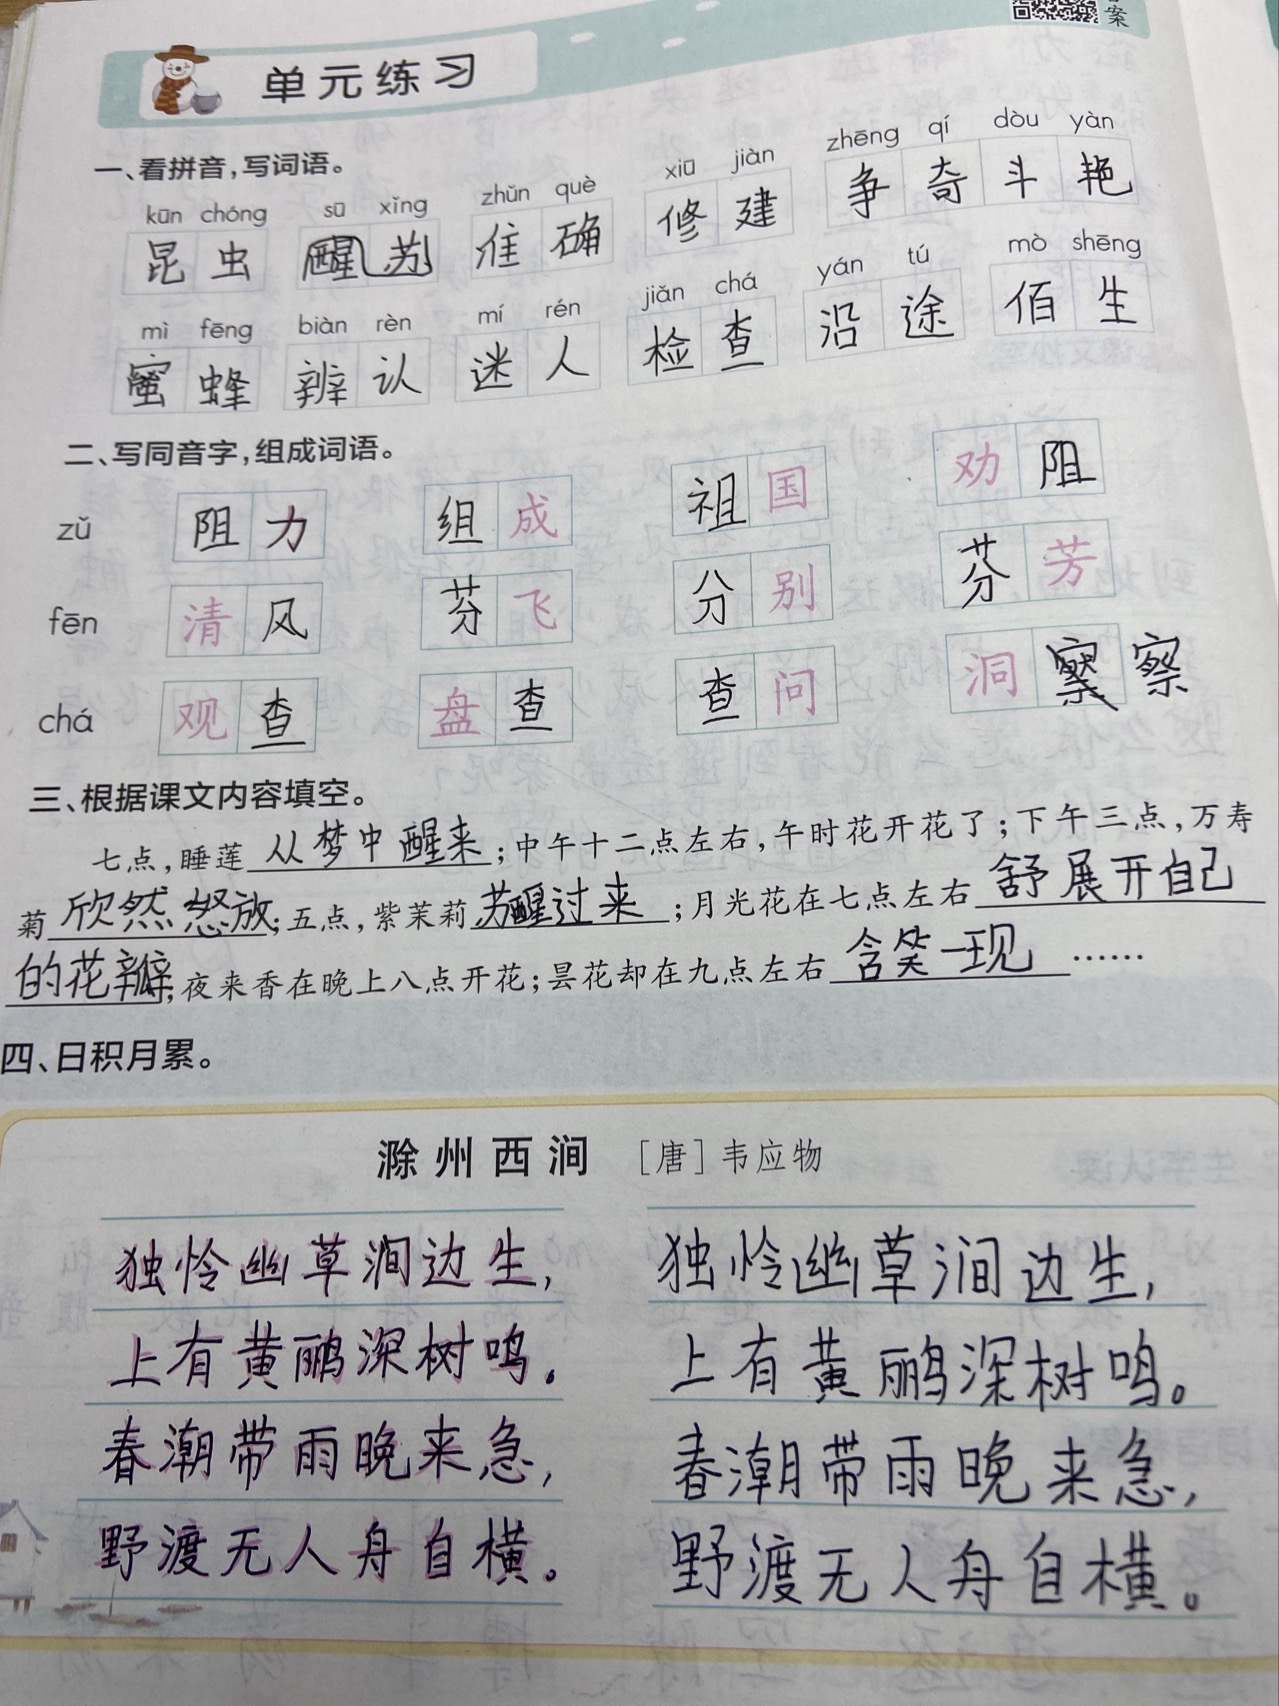 案
单元练习
一、看拼音，写词语。
kūn chóng sū xǐng zhǔn què xiū jiàn zhēng qí dòu yàn
昆虫 醒苏 准确 修建 争奇斗艳
mì fēng biàn rèn mí rén jiǎn chá yán tú mò shēng
蜜蜂 辨认 迷人 检查 沿途 佰生
二、写同音字，组成词语。
zǔ 阻力 组成 祖国 劝阻
fēn 清风 芬飞 分别 芬芳
chá 观查 盘查 查问 洞察
三、根据课文内容填空。
七点，睡莲从梦中醒来；中午十二点左右，午时花开花了；下午三点，万寿
菊欣然怒放；五点，紫茉莉苏醒过来；月光花在七点左右舒展开自己
的花瓣；夜来香在晚上八点开花；昙花却在九点左右含笑一现……
四、日积月累。
滁州西涧 ［唐］韦应物
独怜幽草涧边生， 独怜幽草涧边生，
上有黄鹂深树鸣。 上有黄鹂深树鸣。
春潮带雨晚来急， 春潮带雨晚来急，
野渡无人舟自横。 野渡无人舟自横。